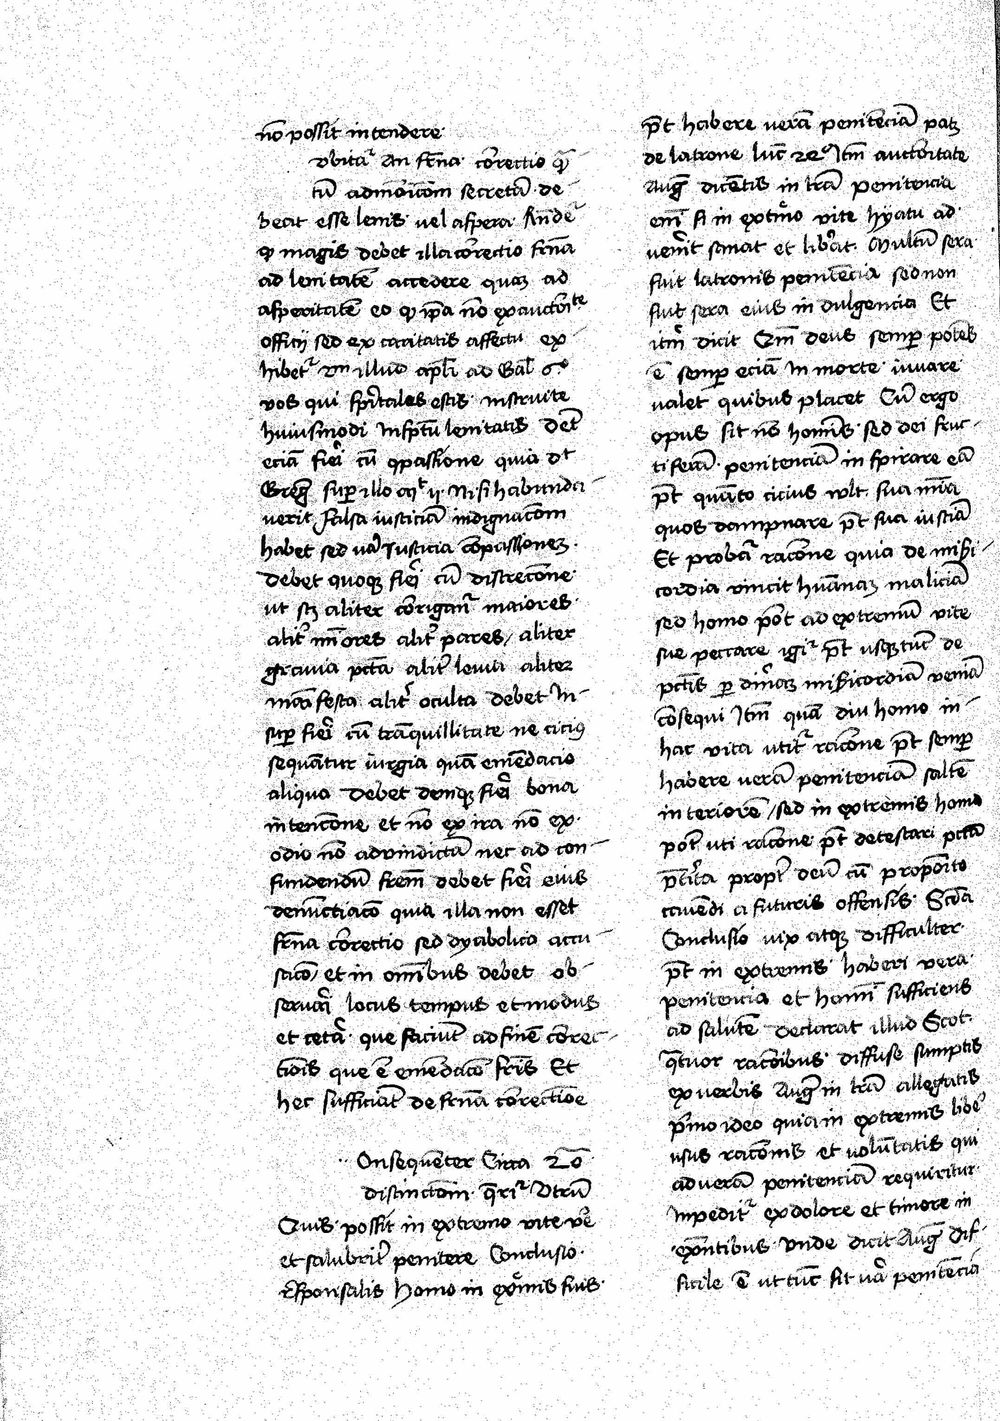 nō possit intendere
vbitat᷑ An fr̄na correctio qͣ
tū admōicōm secretā de
beat esse lenis vel aspera Rn̄det᷑
ꝙ magis debet illa correctio fr̄na
ad lenitatē accedere quaꝫ ad
asperitatē eo ꝙ ip̄a nō ex auctori̅te
officij sed ex caritatis affectu ex
hibet᷑ vn̄ illud apl̄i ad Gal̄ 6°
vos qui sp̄ritales estis instruite
huiusmodi in sp̄tu lenitatis det̄
eciā fieri cū ꝯpassione quia dt̄
Greḡ super illo mͭ ij Nisi habunda
verit falsa iusticia indignacōm
habet sed ua̅ Iusticia cōpassioneꝫ
debet quoqꝫ fieri cū discrecōne
ut scꝫ aliter corrigant᷑ maiores
alit᷑ mīores alit᷑ pares / aliter
grauia pctā alit᷑ leuia aliter
māifesta alit᷑ oculta debet in
sup̄ fieri cū trāquillitate ne cicius
sequantur iurgia quā emēdacio
aliqua debet deniqꝫ fieri bona
intencōne et nō ex ira nō ex
odio nō ad vindictā nec ad con
fundendū fr̄em debet fieri eius
denūctiacō quia illa non esset
fr̄na correctio sed dyabolica accu
sacō / et in om̄ibus debet ob
seruari locus tempus et modus
et cetā que faciūt ad finē correc
tiōis que ē emēdacō fr̄is Et
hec sufficiāt de fr̄na correctiōe
Onsequenter Circa 2ō
distinctōm q̄rit᷑ Vtrū
Quis possit in extremo vite ve̅
et salubrit᷑ penitere Conclusio
rn̄sponsalis Homo in extm̄is suis
pt̄ habere verā penitēciā patꝫ
de latrone luc 22° Itm̄ auctoritate
Auḡ dicētis in lr̄a penitencia
enī si in extmo vite hyatu ad
venit sanat et lib̄at Multū sera
fuit latronis penitēcia sed non
fuit sera eius indulgencia Et
itm̄ dicit Qm̄ deus semp̄ potēs
ē semp̄ eciā in morte iuuare
valet quibus placet Cū ergo
opus sit nō homīs sed dei fruc
tiferā penitenciā inspirare eā
pt̄ quanto cicius vlt sua mīa
quos dampnare pt̄ sua iusticiā
Et probat᷑ racōne quia dei mīsi
cordia vincit humānaꝫ maliciā
sed homo pōt ad extremū vite
sue peccare igit᷑ pt̄ usqꝫ tūc de
pctīs per dīnaꝫ mīsericordiā veniā
cōsequi Itm̄ quā diu homo in
hac vita utit᷑ racōne pt̄ semp̄
habere verā penitenciā saltē
interiorē / sed in extremis homo
pōt uti racōne pt̄ detestari pctā
pt̄ita propt᷑ deū cū proposito
cauendi a futuris offensis Scd̄a
Conclusio vix atqꝫ difficulter
pt̄ in extremis haberi vera
penitencia et homī sufficiens
ad salutē declarat illud Scot
qͣtuor racōibus diffuse sumptis
ex verbis Auḡ in lr̄a allegatis
p̄mo ideo quia in extremis libe᷑
usus racōnis et volūtatis qui
ad verā penitenciā requiritur
impedit᷑ ex dolore et timore in
ex̄ntibus Vnde dicit Auḡ Dif
ficile ē ut tūc sit ua̅ penitēcia